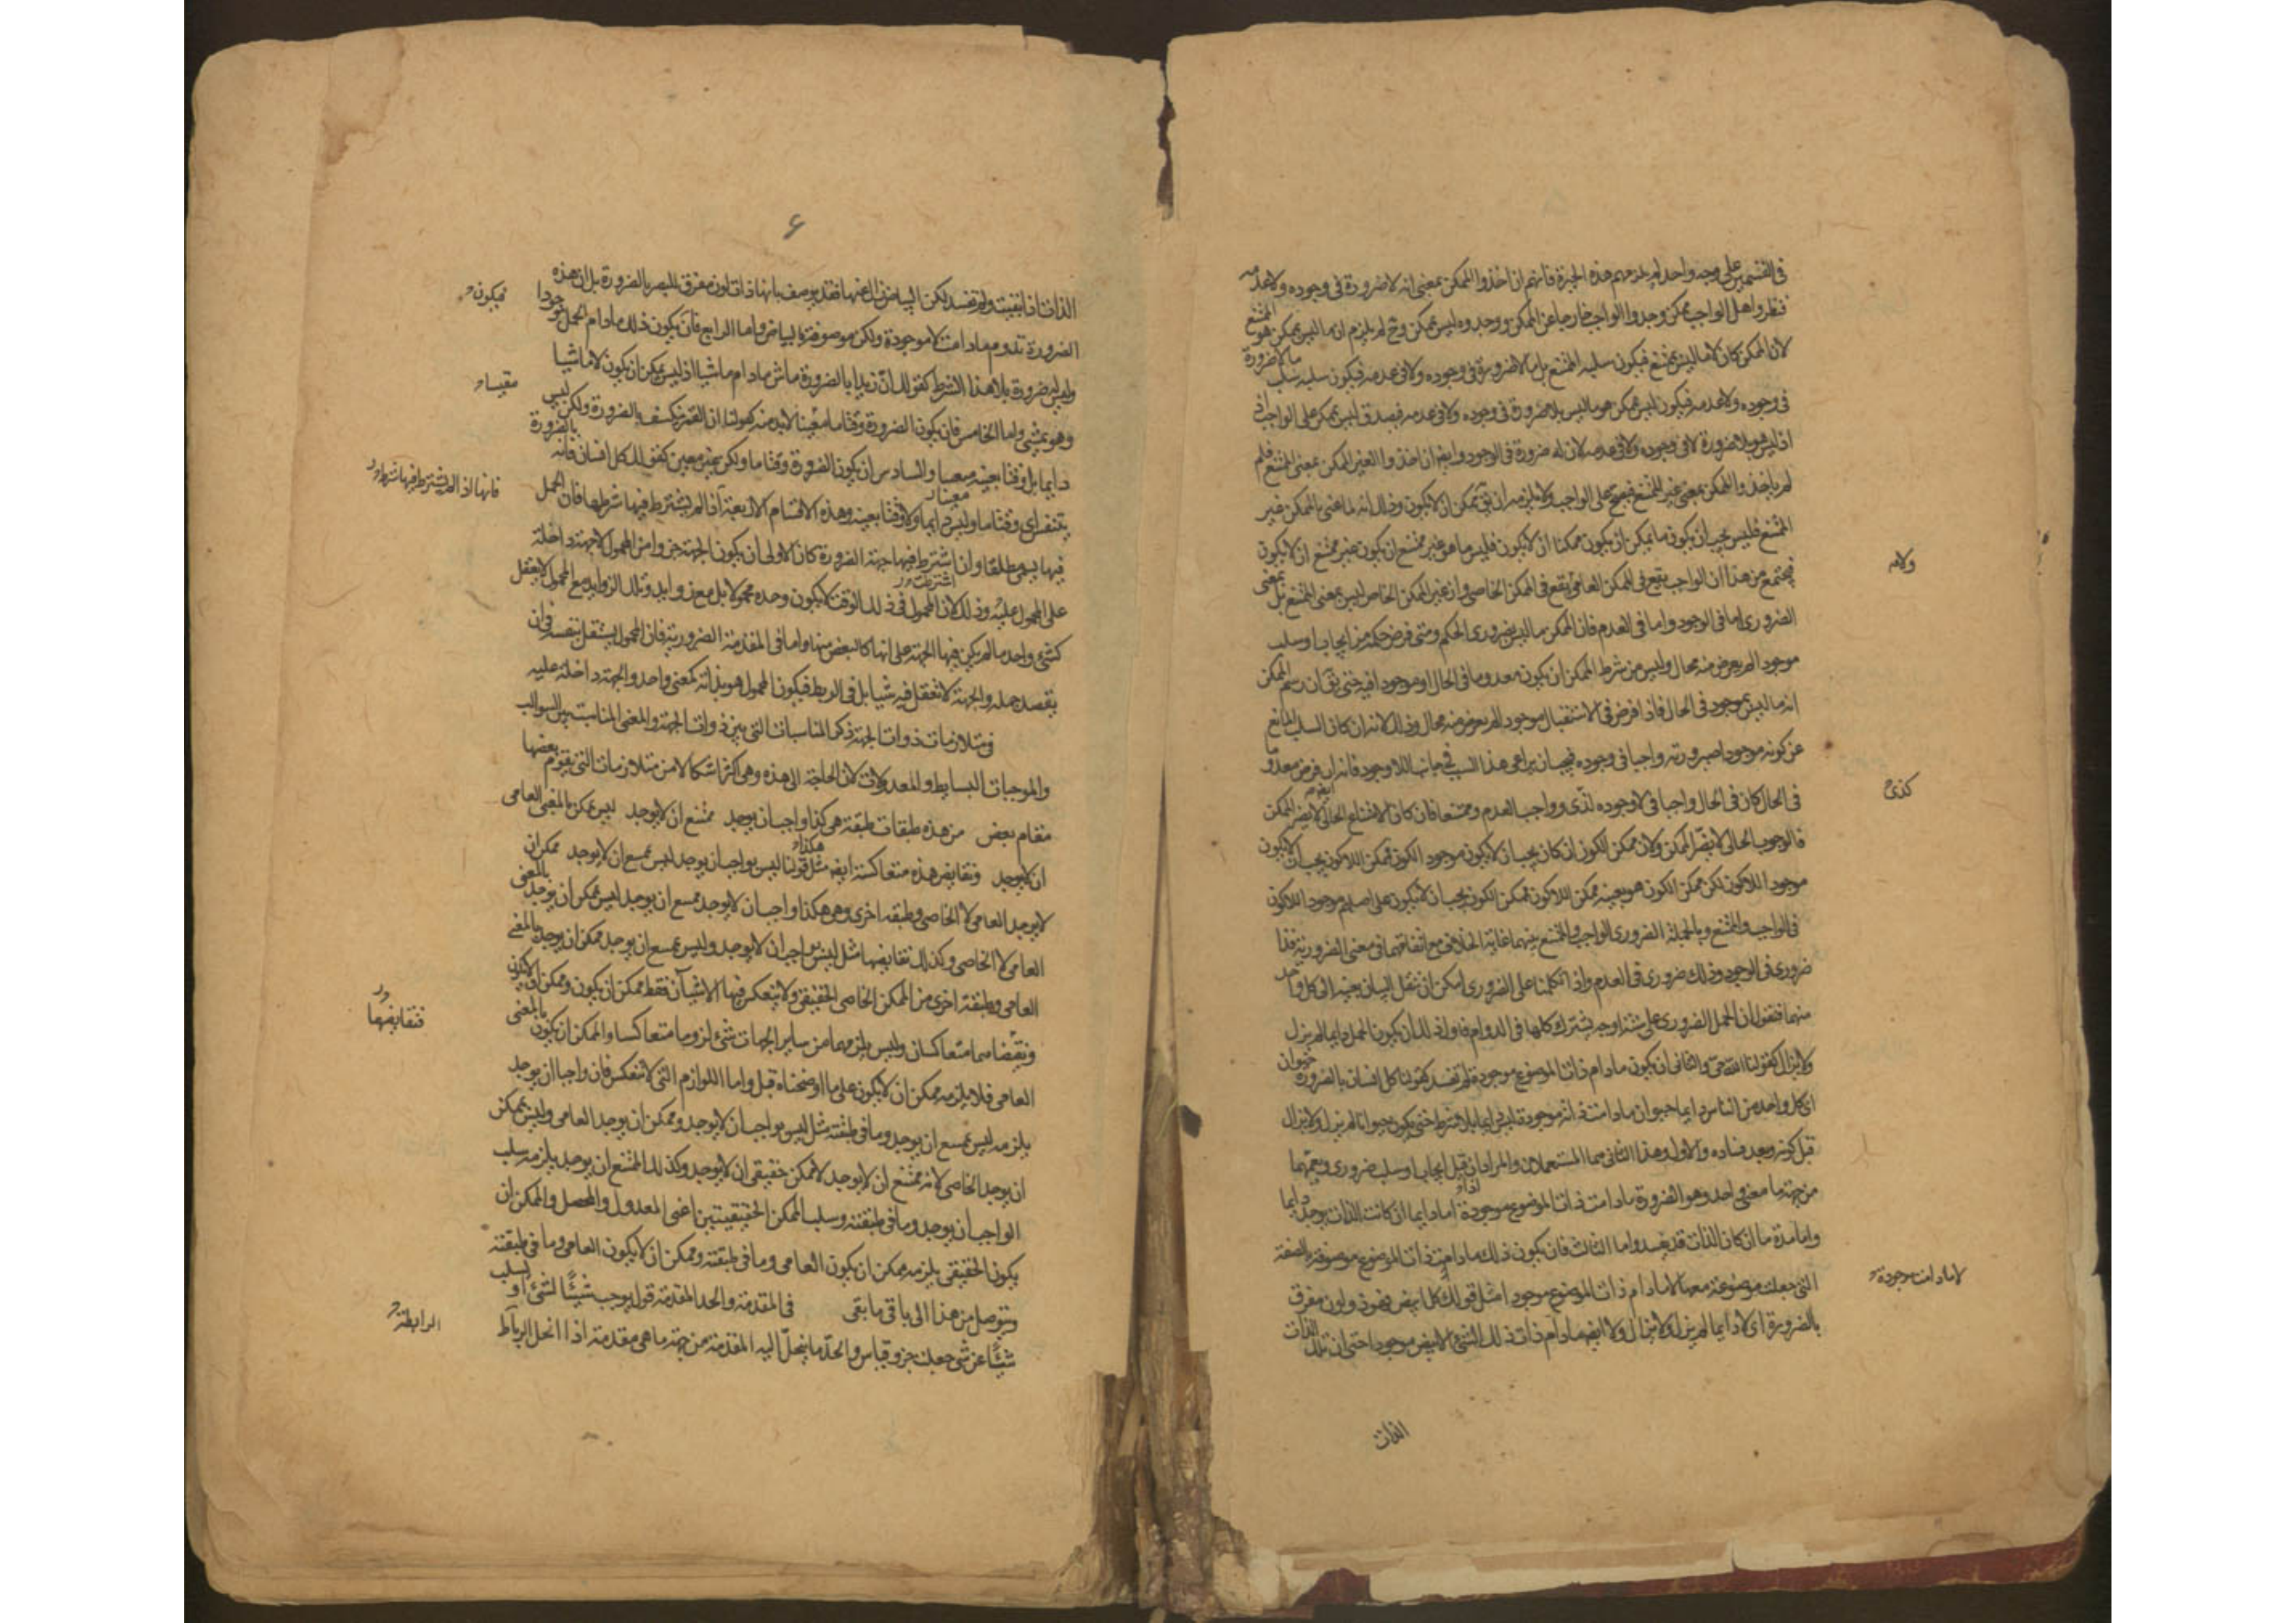 في القسمين على وجه واحد لم يلزمهم هذه الحيرة فانهم ان اخذوا الممكن بمعنى انه لا ضرورة في وجوده ولا عدمه
فنظروا هل الواجب ممكن وجدوا الواجب خارجا عن الممكن ووجدوه ليس بممكن وح لم يلزم ان ما ليس بممكن هو الممتنع
لان الممكن كان لا ما ليس بممتنع فيكون سلبه الممتنع بل ما لا ضرورة في وجوده ولا في عدمه فيكون سلبه سلب ما لا ضرورة
في وجوده ولا عدمه فيكون ليس بممكن هو ما ليس بلا ضرورة في وجوده ولا في عدمه فيصدق ليس بممكن على الواجب
اذ ليس هو بلا ضرورة لا في وجوده ولا في عدمه لان له ضرورة في الوجود وايضا ان اخذوا الغير الممكن بمعنى الممتنع فلم
لم ياخذوا الممكن بمعنى غير الممتنع فيصح على الواجب ولا يلزمه ان يق ممكن ان لا يكون وذلك انه لما عنى بالممكن غير
الممتنع فليس يجب ان يكون ما يمكن ان يكون ممكنا ان لا يكون فليس ما هو غير ممتنع ان يكون غير ممتنع ان لا يكون
فيجتمع من هذا ان الواجب يقع في الممكن العامي يقع في الممكن الخاصي وان غير الممكن الخاص ليس بمعنى الممتنع بل بمعنى
ولا
الضروري اما في الوجود واما في العدم فان الممكن ما ليس بضروري الحكم ومتى فرض حكمه من ايجاب او سلب
موجودا لم يعرض منه محال وليس من شرط الممكن ان يكون معدوما في الحال او موجودا فيه حتى يق ان رسم الممكن
انه ما ليس بموجود في الحال فاذا فرض في الاستقبال موجودا لم يعرض منه محال وذلك لانه ان كان السبب المانع
عن كونه موجودا صيرورته واجبا في وجوده فيجب ان يراعى هذا السبب في جانب اللا وجود فانه ان فرض معدوما
في الحال كان في الحال واجبا في لا وجوده لذى وواجب العدم وممتنعا فان كان الامتناع الحالي لا يضر الممكن
ايضا
كذى
فالوجوب الحالي لا يضر الممكن ولان ممكن الكون ان كان يجب ان لا يكون موجود الكون فممكن اللا كون يجب ان لا يكون
موجود اللا كون لكن ممكن الكون هو بعينه ممكن اللا كون فممكن الكون يجب ان لا يكون على اصلهم موجود اللا كون
في الواجب والممتنع وبالجملة الضروري الواجب والممتنع بينهما غاية الخلاف مع اتفاقهما في معنى الضرورية فذا
ضروري في الوجود وذلك ضروري في العدم واذا تكلمنا على الضروري امكن ان ننقل البيان بعينه الى كل واحد
منهما فنقول ان الحمل الضروري على ستة اوجه يشترك كلها في الدوام فاول ذلك ان يكون الحمل دايما لم يزل
ولا يزال كقولنا الله حي والثاني ان يكون ما دام ذات الموضوع موجودة لم تفسد كقولنا كل انسان بالضرورة حيوان
اي كل واحد من الناس دايما حيوان ما دامت ذاته موجودة ليس دايما بلا شرط حتى يكون حيوانا لم يزل ولا يزال
قبل كونه وبعد فساده والاول وهذا الثاني هما المستعملان والمرادان اذا قيل ايجاب او سلب ضروري ويعمهما
من جهة ما معنى واحد وهو الضرورة ما دامت ذات الموضوع موجودة اما دايما ان كانت الذات يوجد دايما
واما مدة ما ان كان الذات قد يفسد واما الثالث فان يكون ذلك ما دامت ذات الموضوع موصوفة بالصفة
التي جعلت موضوعة معها لا ما دام ذات الموضوع موجودا مثل قولك كل ابيض فهو ذو لون مفرق
لا ما دامت موجودة
بالضرورة اي لا دايما لم يزل ولا يزال ولا ايضا ما دام ذات ذلك الشئ الابيض موجودا حتى ان تلك الذات
الذات
۶
الذات اذا بقيت ولم تفسد لكن البياض زال عنها فقد يوصف بانها ذات لون مفرق للبصر بالضرورة بل ان هذه
الضرورة تدوم ما دامت لا موجودة ولكن موصوفة بالبياض واما الرابع فان يكون ذلك ما دام الحمل موجودا
فيكون
وليس ضرورة بلا هذا الشرط كقولك ان زيدا بالضرورة ماش ما دام ماشيا اذ ليس يمكن ان يكون لا ماشيا
وهو يمشي واما الخامس فان يكون الضرورة وقتا ما معينا لا بد منه كقولنا ان القمر ينكسف بالضرورة ولكن ليس
دايما بل وقتا بعينه معينا والسادس ان يكون الضرورة وقتا ما ولكن بغير معين كقولك كل انسان فانه بالضرورة
يتنفس اي وقتا ما وليس دايما ولا وقتا بعينه وهذه الاقسام الاربعة اذا لم يشترط فيها شرطها فان الحمل
معينا
فانها اذا لم يشترط فيها شرط
فيها يسمى مطلقا وان اشترط فيها جهة الضرورة كان الاولى ان يكون الجهة جزوا من المحمول لا جهة داخلة
على المحمول عليه وذلك لان المحمول في ذلك الوقت لا يكون وحده محمولا بل مع زوايد وتلك الزوايد مع المحمول لا يعقل
كشئ واحد ما لم يكن فيها الجهة على انها كالبعض منها واما في المقدمة الضرورية فان المحمول يستقل بنفسه في ان
يقصد حمله والجهة لا تفعل فيه شيا بل في الربط فيكون المحمول هو بذاته كمعنى واحد والجهة داخلة عليه
في متلازمات ذوات الجهة ذكر المناسبات التي بين ذوات الجهة والمعنى المناسبة بين السوالب
والموجبات البسايط والمعدولات لان الحاجة الى هذه وهي اكثر اشكالا من متلازمات التي يقوم بعضها
مقام بعض من هذه طبقات طبقة هي كذا واجب ان يوجد ممتنع ان لا يوجد ليس بممكن بالمعنى العامي
ان لا يوجد ونقايض هذه متعاكسة ايضا مثل قولنا ليس بواجب ان يوجد ليس بممتنع ان لا يوجد ممكن ان
هكذا
لا يوجد العامي لا الخاصي وطبقة اخرى وهي هكذا واجب ان لا يوجد ممتنع ان يوجد ليس بممكن ان يوجد بالمعنى
العامي لا الخاصي وكذلك نقايضها مثل ليس بواجب ان لا يوجد وليس بممتنع ان يوجد ممكن ان يوجد بالمعنى
العامي وطبقة اخرى من الممكن الخاصي الحقيقي ولا ينعكس فيها الا شيآن فقط ممكن ان يكون وممكن ان لا يكون
ونقيضاهما متعاكسان وليس يلزمهما من ساير الجهات شئ لزوما متعاكسا والممكن ان يكون بالمعنى
فنقايضها
العامي فلا يلزمه ممكن ان لا يكون على ما اوضحناه قبل واما اللوازم التي لا تنعكس فان واجبا ان يوجد
يلزمه ليس بممتنع ان يوجد وما في طبقته مثل ليس بواجب ان لا يوجد وممكن ان يوجد العامي وليس بممكن
ان يوجد الخاصي لانه ممتنع ان لا يوجد لا ممكن حقيقي ان لا يوجد وكذلك الممتنع ان يوجد يلزمه سلب
الواجب ان يوجد وما في طبقته وسلب الممكن الحقيقيتين اعني المعدول والمحصل والممكن ان
يكون الحقيقي يلزمه ممكن ان يكون العامي وما في طبقته وممكن ان لا يكون العامي وما في طبقته
ونتوصل من هذا الى باقي ما بقى في المقدمة والحد المقدمة قول يوجب شيئا لشئ او يسلب
شيئا عن شئ جعلت جزو قياس والحد ما ينحل اليه المقدمة من جهة ما هي مقدمة اذا انحل الرباط
الرابطة